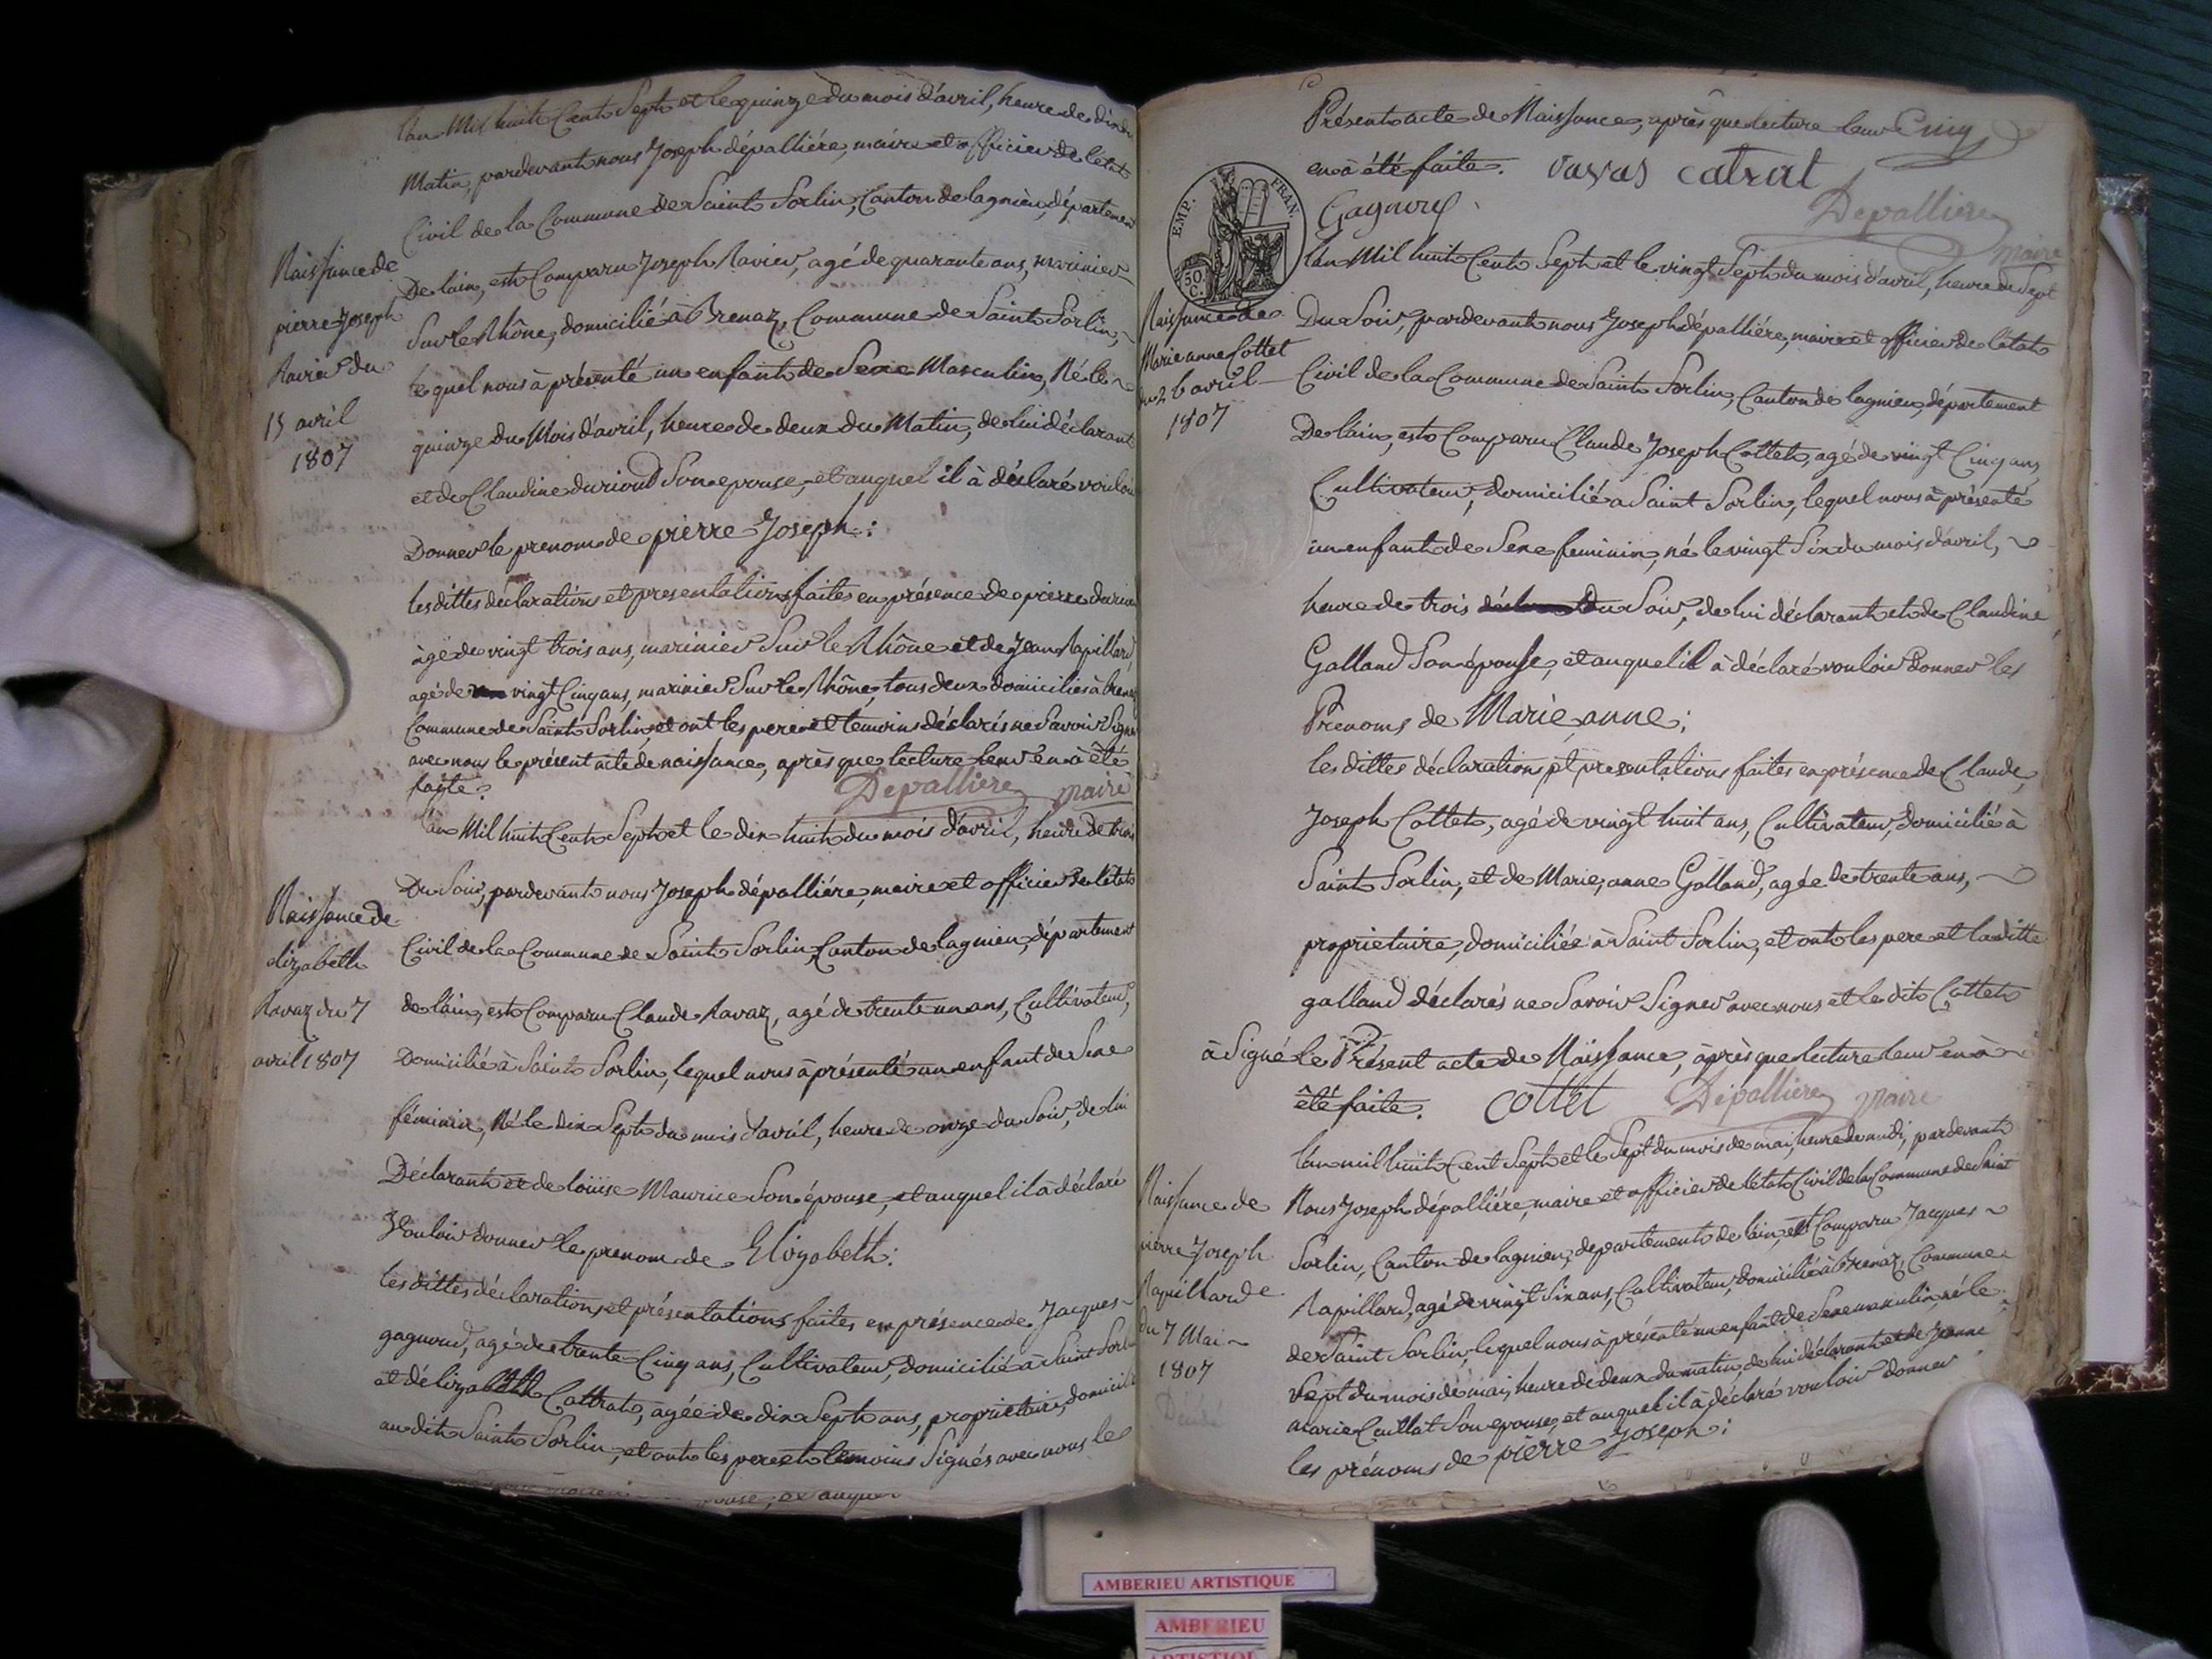 l'an Mil huit Cent Sept et le quinze du mois d'avril, heure de dix du
Matin, pardevant nous Joseph dépalliére, maire et officier de l'état
Civil de la Commune de Saint Sorlin, Canton de lagnieu, département
Naissance de
pierre Joseph
Ravier du
15 avril
1807
De lain, est Comparu Joseph Ravier, agé de quarante ans, marinier
Sur le Rhône, domicilié à Brenaz, Commune de Saint Sorlin,
lequel nous à présenté un enfant de Sexe Masculin, Né le
quinze du Mois d'avril, heure de deux du Matin, de lui déclarant
et de Claudine durioud Son epouse, et auquel il à déclaré vouloir
Donner le prenom de pierre Joseph :
les dittes déclarations et presentations faites en présence de pierre duriou
âgé de vingt trois ans, marinier Sur le Rhône et de Jean Rapillard,
agé de vingt Cinq ans, marinier Sur le Rhône, tous deux domiciliés à brenaz
Commune de Saint Sorlin, et ont les pere et temoins déclarés ne Savoir Signer
avec nous le présent acte de naissance, après que lecture leur en à été
faite.
Depalliere maire
l'an Mil huit Cent Sept et le dix huit du mois d'avril, heure de trois
Naissance de
elizabeth
Ravaz du 7
avril 1807
Du Soir, pardevant nous Joseph dépalliére, maire et officier de l'état
Civil de la Commune de Saint Sorlin, Canton de lagnieu, département
de lain, est Comparu Claude Ravaz, agé de trente un ans, Cultivateur,
Domicilié à Saint Sorlin, lequel nous à présenté un enfant de Sexe
féminin, Né le dix Sept du mois d'avril, heure de onze du Soir, de lui
Déclarant et de loüise Maurice Son épouse, et auquel il à déclaré
Vouloir donner le prenom de Elizabeth :
les dittes déclarations et présentations faites en présence de Jacques
gagnoud, agé de trente Cinq ans, Cultivateur, domicilié à Saint Sorlin
et d'élizabeth Cattrat, agée de dix Sept ans, proprietaire, domicilié
au dit Saint Sorlin, et ont les pere et temoins Signés avec nous le
Présent acte de Naissance, après que lecture leur
en à été faite. vavas catrat
Depalliere
maire
EMP. FRAN.
50 C.
l'an Mil huit Cent Sept et le vingt Sept du mois d'avril, heure de Sept
Naissance de
Marie anne Cottet
du 26 avril
1807
Du Soir, pardevant nous Joseph dépalliére, maire et officier de l'état
Civil de la Commune de Saint Sorlin, Canton de lagnieu, département
De lain, est Comparu Claude Joseph Cottet, agé de vingt Cinq ans
Cultivateur, domicilié a Saint Sorlin, lequel nous à présenté
un enfant de Sexe feminin, né le vingt Six du mois d'avril,
heure de trois du Soir, de lui déclarant et de Claudine
Galland Son épouse, et auquel il à déclaré vouloir Donner les
Prenoms de Marie anne :
les dittes déclarations et presentations faites en présence de Claude
Joseph Cottet, agé de vingt huit ans, Cultivateur, domicilié à
Saint Sorlin, et de Marie anne Galland, agée de trente ans,
proprietaire, domiciliée à Saint Sorlin, et ont les pere et la ditte
galland déclarés ne Savoir Signer avec nous et le dit Cottet
à Signé le Présent acte de Naissance, après que lecture leur en à
été faite. cottet Depalliere maire
l'an mil huit Cent Sept et le Sept du mois de mai, heure de midi, pardevant
Naissance de
pierre Joseph
Rapillard
du 7 Mai
1807
Décédé
Nous Joseph dépalliére, maire et officier de l'état Civil de la Commune de Saint
Sorlin, Canton de lagnieu, departement de lain, est Comparu Jacques
Rapillard, agé de vingt Six ans, Cultivateur, domicilié à Brenaz, Commune
de Saint Sorlin, lequel nous à présenté un enfant de Sexe masculin, né le
Sept du mois de mai, heure de deux du matin, de lui déclarant et de Jeanne
marie Cuillat Son epouse, et auquel il à déclaré vouloir donner
les prénoms de pierre Joseph :
AMBERIEU ARTISTIQUE
AMBERIEU
ARTISTIQUE